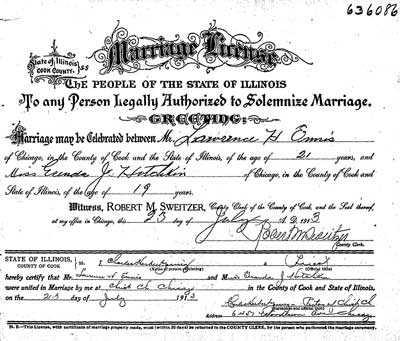 636086
Marriage License
State of Illinois
COOK COUNTY. SS
THE PEOPLE OF THE STATE OF ILLINOIS
To any Person Legally Authorized to Solemnize Marriage.
GREETING:
Marriage may be Celebrated between Mr. Lawrence H Ennis
of Chicago, in the County of Cook and the State of Illinois, of the age of 21 years, and
Miss J Hotchkin of Chicago, in the County of Cook and
State of Illinois, of the age of 19 years.
Witness, ROBERT M. SWEITZER, County Clerk of the County of Cook, and the Seal thereof,
at my office in Chicago, this 23 day of July A.D. 1913
Robert M Sweitzer
County Clerk.
STATE OF ILLINOIS,
COUNTY OF COOK SS. I, a Priest
(Official title)
hereby certify that Mr. Lawrence H Ennis and Miss Hotchkin
were united in Marriage by me at Christ Ch Chicago in the County of Cook and State of Illinois,
on the day of July 1913
Christ Ch
Address Chicago
N. B.—This License, with certificate of marriage properly made, must (within 30 days) be returned to the COUNTY CLERK, by the person who performed the marriage ceremony.